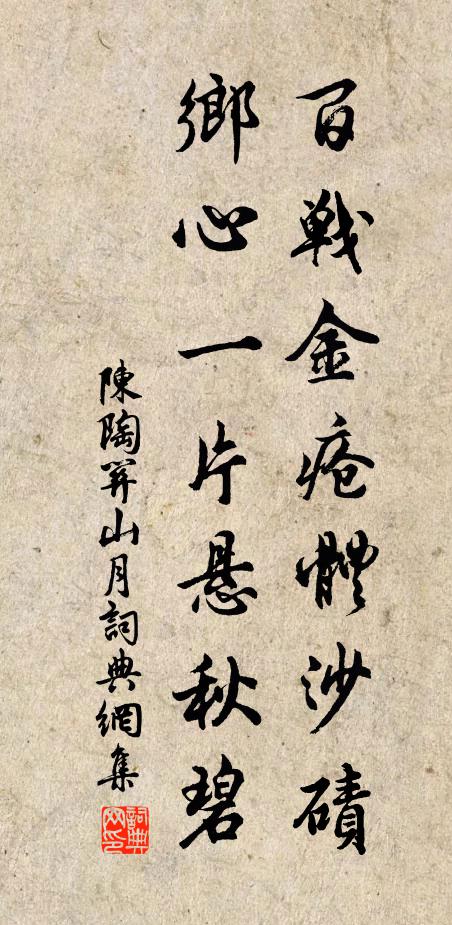 百戰金瘡體沙磧
鄉心一片懸秋碧
陳陶關山月詞典網集
詞典網印